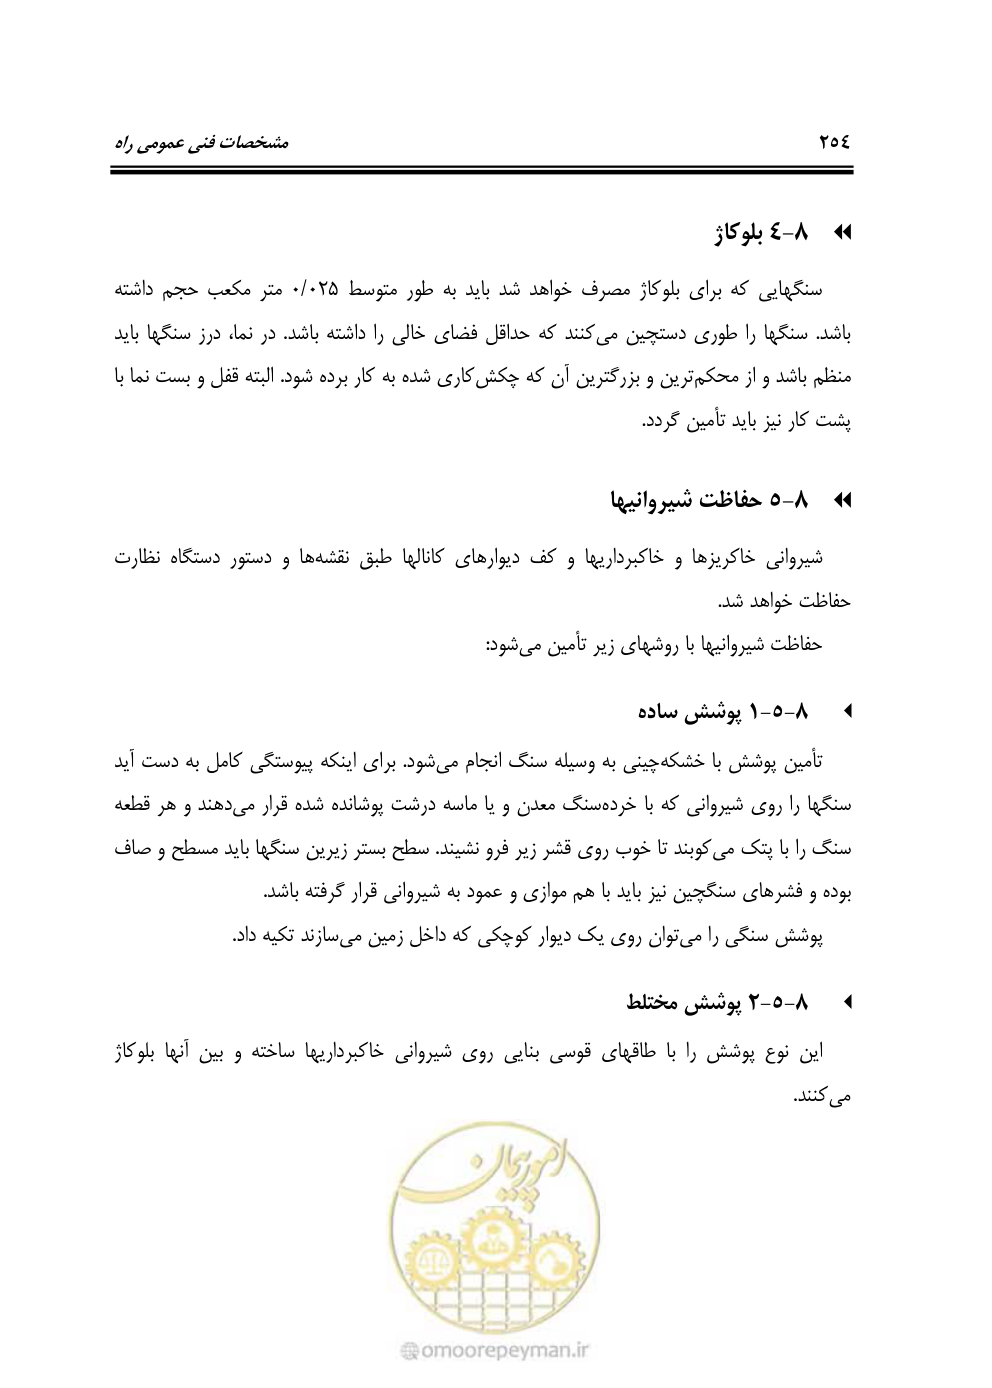 ۲۵۴ مشخصات فنی عمومی راه
۸-۴ بلوکاژ
سنگهایی که برای بلوکاژ مصرف خواهد شد باید به طور متوسط ۰/۰۲۵ متر مکعب حجم داشته
باشد. سنگها را طوری دستچین می‌کنند که حداقل فضای خالی را داشته باشد. در نما، درز سنگها باید
منظم باشد و از محکم‌ترین و بزرگترین آن که چکش‌کاری شده به کار برده شود. البته قفل و بست نما با
پشت کار نیز باید تأمین گردد.
۸-۵ حفاظت شیروانیها
شیروانی خاکریزها و خاکبرداریها و کف دیوارهای کانالها طبق نقشه‌ها و دستور دستگاه نظارت
حفاظت خواهد شد.
حفاظت شیروانیها با روشهای زیر تأمین می‌شود:
۸-۵-۱ پوشش ساده
تأمین پوشش با خشکه‌چینی به وسیله سنگ انجام می‌شود. برای اینکه پیوستگی کامل به دست آید
سنگها را روی شیروانی که با خرده‌سنگ معدن و یا ماسه درشت پوشانده شده قرار می‌دهند و هر قطعه
سنگ را با پتک می‌کوبند تا خوب روی قشر زیر فرو نشیند. سطح بستر زیرین سنگها باید مسطح و صاف
بوده و فشرهای سنگچین نیز باید با هم موازی و عمود به شیروانی قرار گرفته باشد.
پوشش سنگی را می‌توان روی یک دیوار کوچکی که داخل زمین می‌سازند تکیه داد.
۸-۵-۲ پوشش مختلط
این نوع پوشش را با طاقهای قوسی بنایی روی شیروانی خاکبرداریها ساخته و بین آنها بلوکاژ
می‌کنند.
امور پیمان
@omoorepeyman.ir